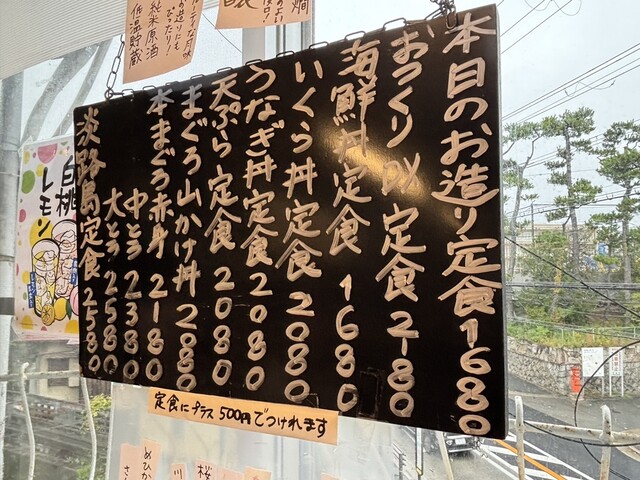 本日のお造り定食 1680
おつくりDX定食 2180
海鮮丼定食 1680
いくら丼定食 2080
うなぎ丼定食 2080
天ぷら定食 2080
まぐろ山かけ丼 2080
本まぐろ赤身 2180
中とろ 2380
大とろ 2580
淡路島定食 2580
定食にプラス500円でつけれます
お造りにも
ぴったり!
純米原酒
低温貯蔵
白桃
レモン
めひか